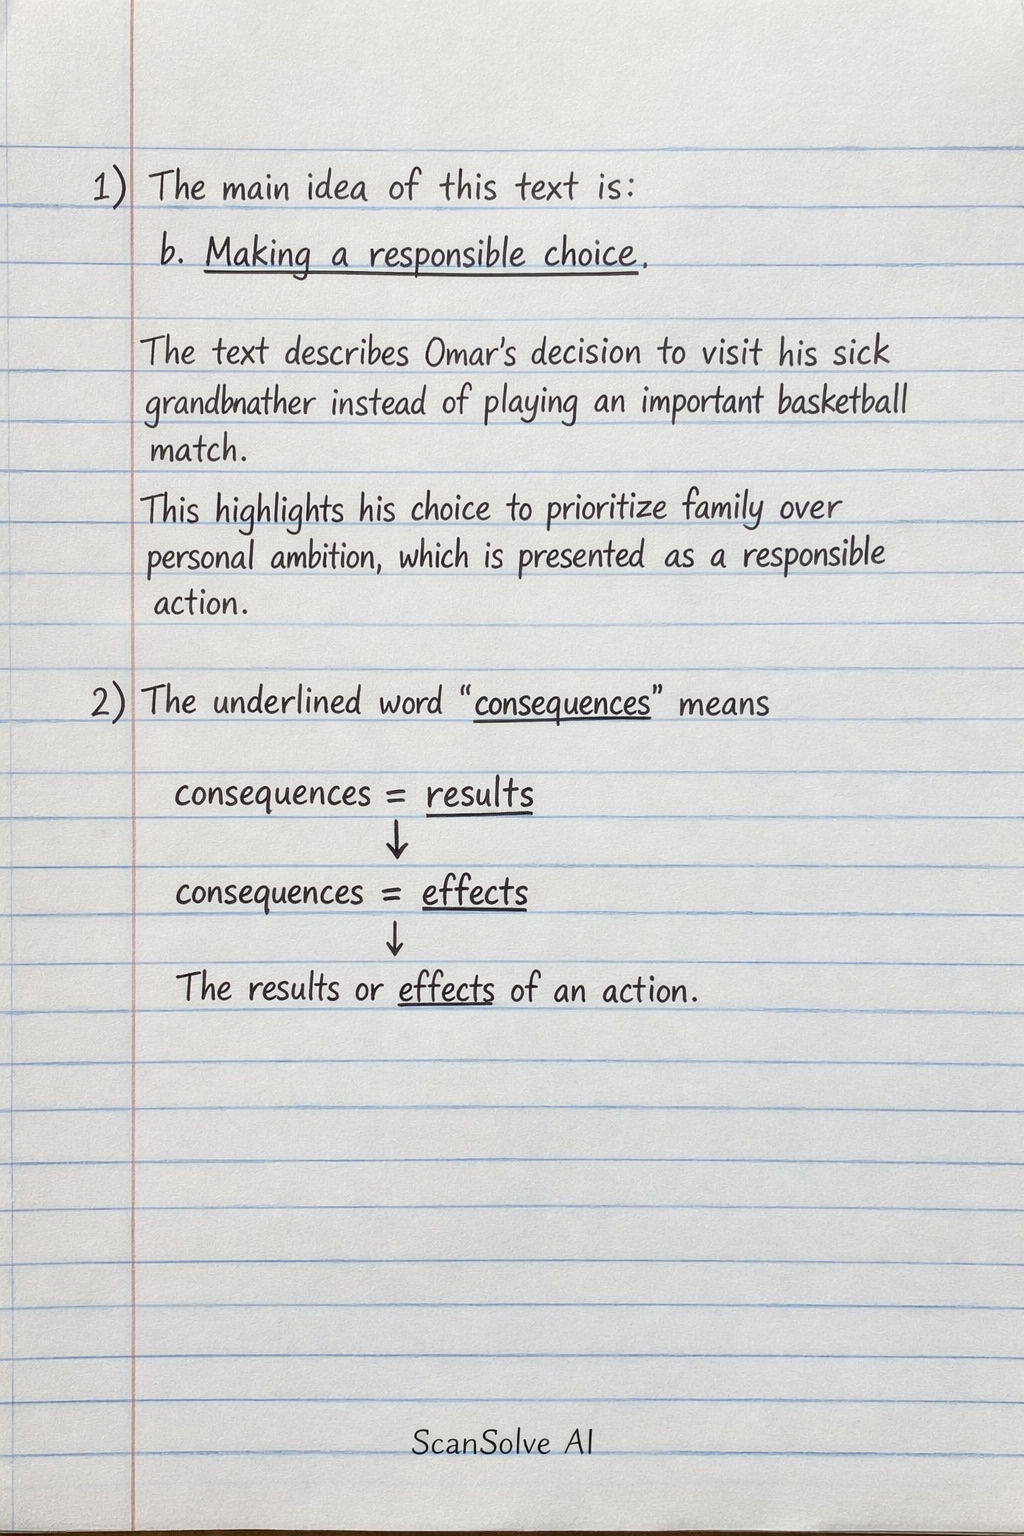 1) The main idea of this text is:
b. Making a responsible choice.
The text describes Omar's decision to visit his sick
grandbnather instead of playing an important basketball
match.
This highlights his choice to prioritize family over
personal ambition, which is presented as a responsible
action.
2) The underlined word “consequences” means
consequences = results
↓
consequences = effects
↓
The results or effects of an action.
ScanSolve AI